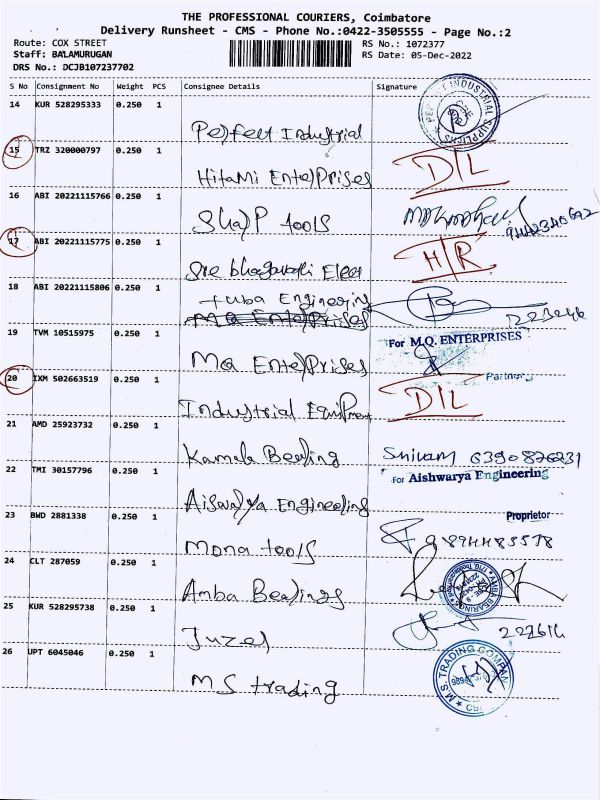 THE PROFESSIONAL COURIERS, Coimbatore
Delivery Runsheet - CMS - Phone No.:0422-3505555 - Page No.:2
Route: COX STREET
RS No.: 1072377
Staff: BALAMURUGAN
RS Date: 05-Dec-2022
DRS No.: DCJB107237702
S No Consignment No Weight PCS Consignee Details Signature
14 KUR 528295333 0.250 1
Perfect Industrial
15 TRZ 320000797 0.250 1
D/L
Hitami Enterprises
16 ABI 20221115766 0.250 1
Sharp tools
17 ABI 20221115775 0.250 1
H/R
Sre bhagavathi Elect
18 ABI 20221115806 0.250 1
Tuba Engineering
19 TVM 10515975 0.250 1
For M.Q. ENTERPRISES
MQ Enterprises
Partner
20 IXM 502663519 0.250 1
D/L
Industrial Equipment
21 AMD 25923732 0.250 1
Kamala Bearing
22 TMI 30157796 0.250 1
For Aishwarya Engineering
Aiswarya Engineering
Proprietor
23 BWD 2881338 0.250 1
Mona tools
24 CLT 287059 0.250 1
Amba Bearings
25 KUR 528295738 0.250 1
Juzel
26 UPT 6045046 0.250 1
M.S. TRADING COMPANY
MS trading